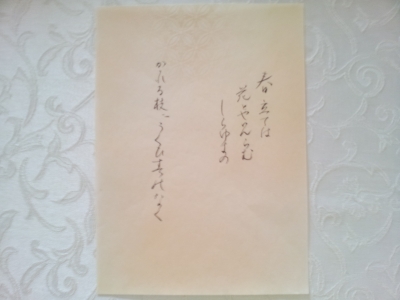 春立ては
花とやみらむ
しらゆきの
かゝれる枝にうくひすのなく